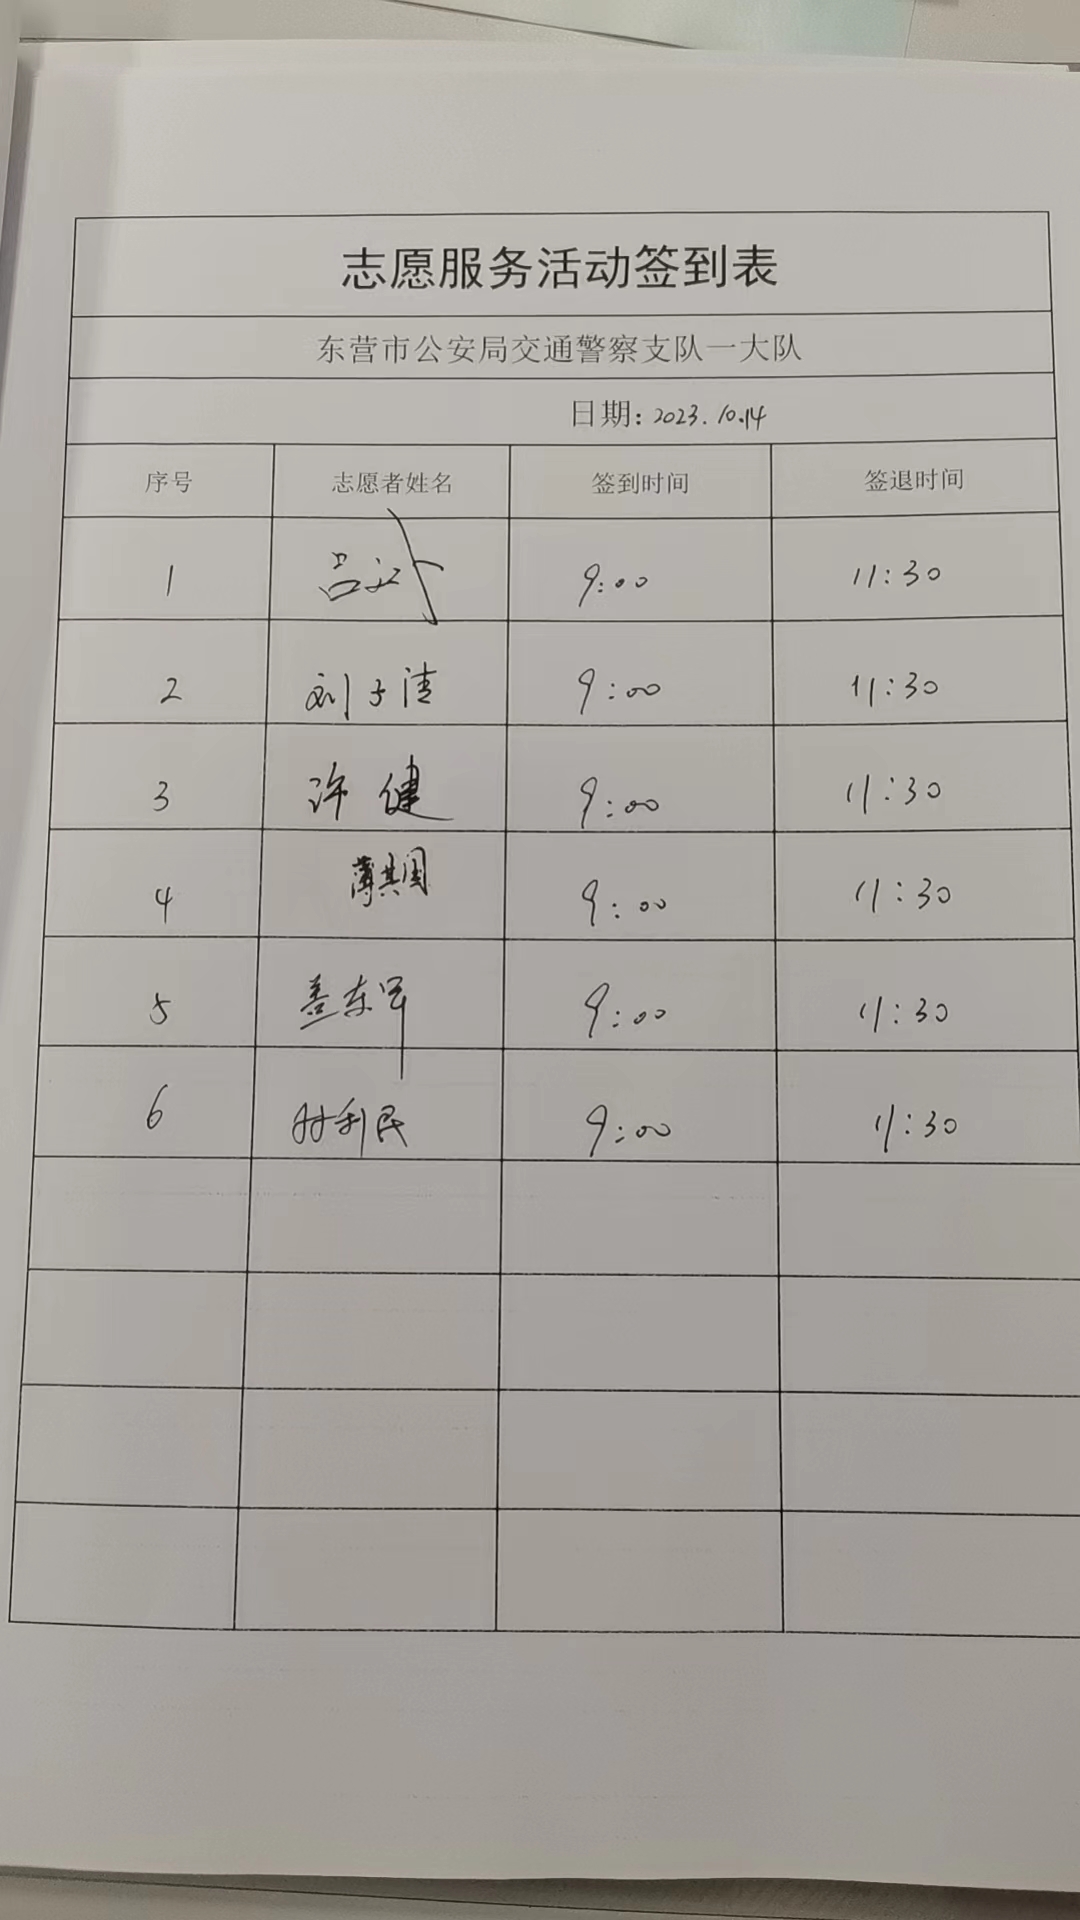 志愿服务活动签到表
东营市公安局交通警察支队一大队
日期：2023.10.14
序号 志愿者姓名 签到时间 签退时间
1 吕 9:00 11:30
2 刘子清 9:00 11:30
3 许健 9:00 11:30
4 薄其国 9:00 11:30
5 盖东军 9:00 11:30
6 时利民 9:00 11:30